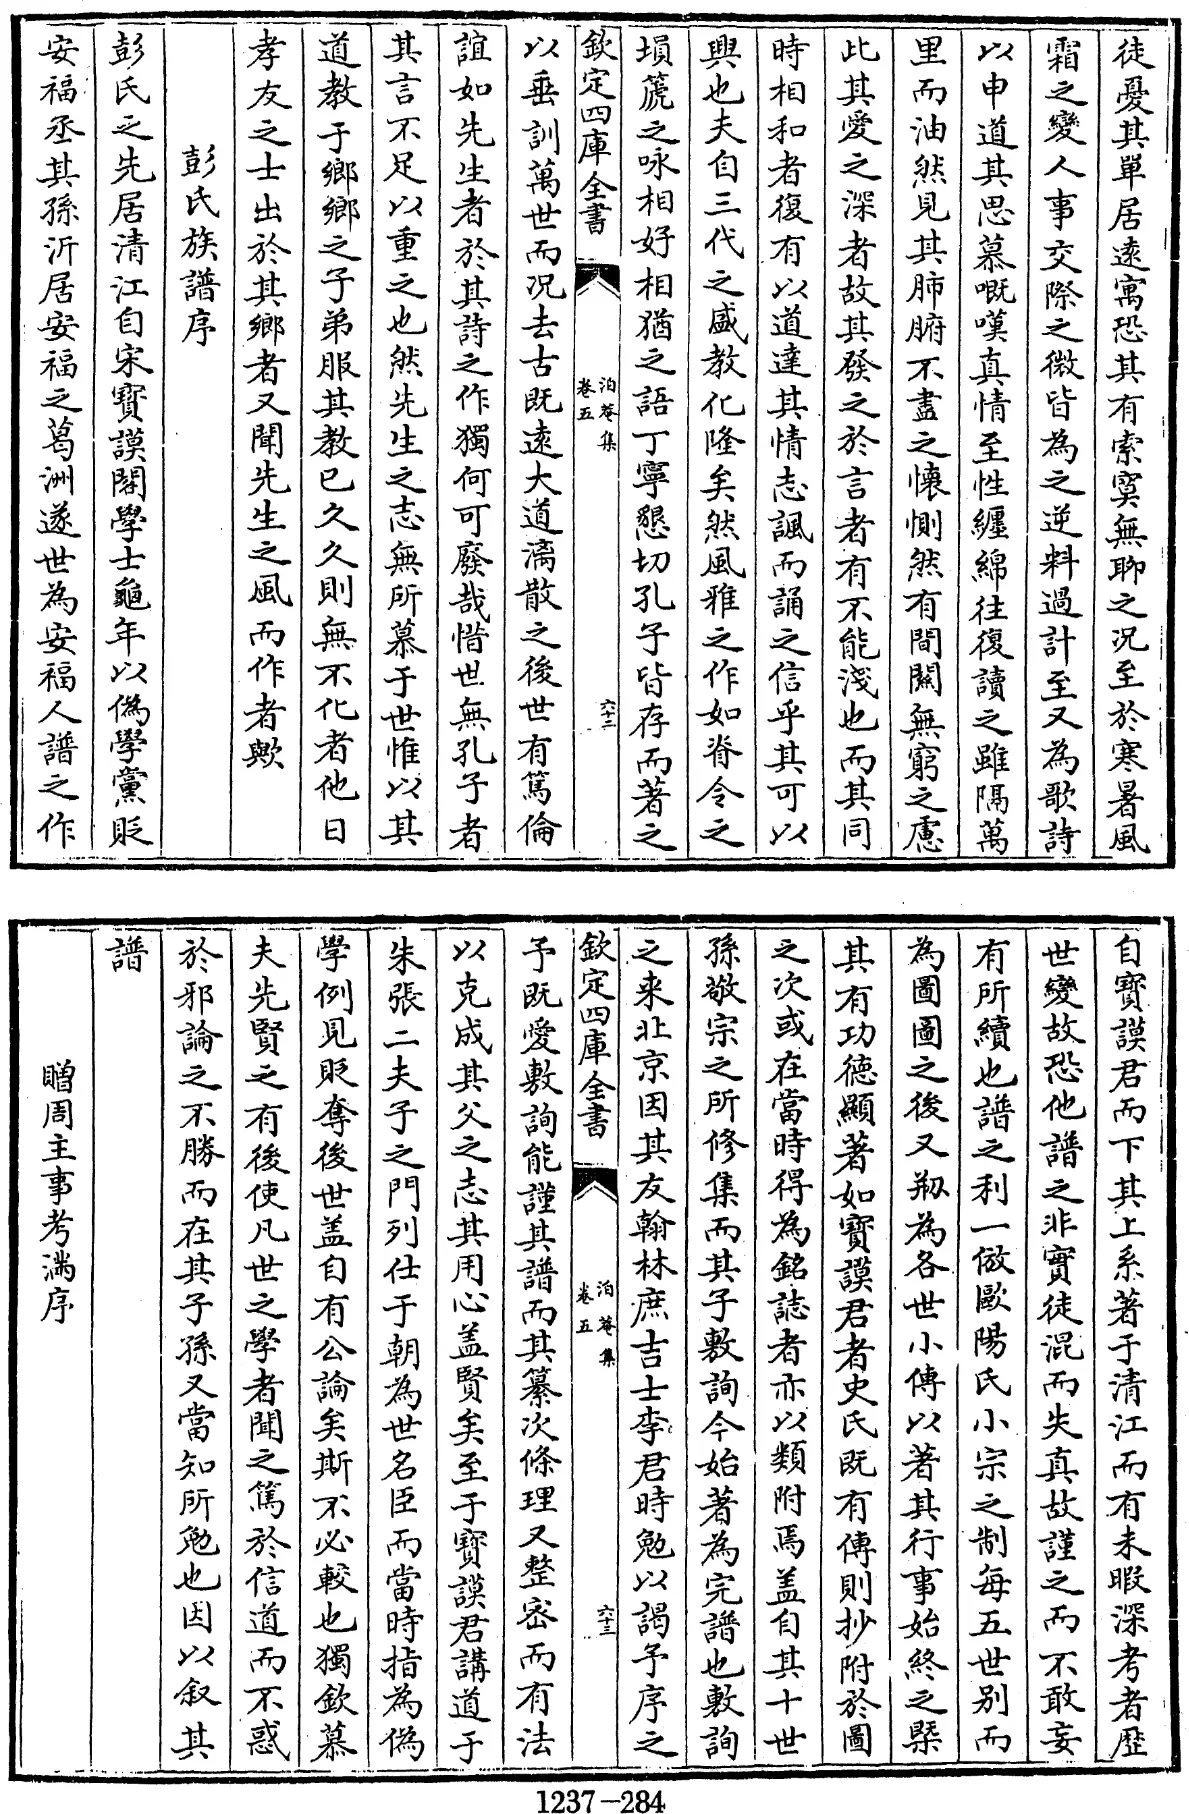 徒憂其單居遠寓恐其有索寞無聊之况至於寒暑風
霜之變人事交際之微皆為之逆料過計至又為歌詩
以申道其思慕嘅嘆真情至性纏綿往復讀之雖隔萬
里而油然見其肺腑不盡之懷惻然有間關無窮之慮
此其愛之深者故其發之於言者有不能淺也而其同
時相和者復有以道達其情志諷而誦之信乎其可以
興也夫自三代之盛教化隆矣然風雅之作如脊令之
塤篪之咏相好相猶之語丁寧懇切孔子皆存而著之
欽定四庫全書
泊菴集
卷五
六十二
以垂訓萬世而况去古既遠大道漓散之後世有篤倫
誼如先生者於其詩之作獨何可廢哉惜世無孔子者
其言不足以重之也然先生之志無所慕于世惟以其
道教于鄉鄉之子弟服其教已久久則無不化者他日
孝友之士出於其鄉者又聞先生之風而作者歟
彭氏族譜序
彭氏之先居清江自宋寶謨閣學士龜年以偽學黨貶
安福丞其孫沂居安福之葛洲遂世為安福人譜之作
自寶謨君而下其上系著于清江而有未暇深考者歴
世變故恐他譜之非實徒混而失真故謹之而不敢妄
有所續也譜之利一倣歐陽氏小宗之制每五世别而
為圖圖之後又剏為各世小傳以著其行事始終之槩
其有功德顯著如寶謨君者史氏既有傳則抄附於圖
之次或在當時得為銘誌者亦以類附焉盖自其十世
孫敬宗之所修集而其子敷詢今始著為完譜也敷詢
之来北京因其友翰林庶吉士李君時勉以謁予序之
欽定四庫全書
泊菴集
卷五
六十三
予既愛敷詢能謹其譜而其纂次條理又整密而有法
以克成其父之志其用心盖賢矣至于寶謨君講道于
朱張二夫子之門列仕于朝為世名臣而當時指為偽
學例見貶奪後世盖自有公論矣斯不必較也獨欽慕
夫先賢之有後使凡世之學者聞之篤於信道而不惑
於邪論之不勝而在其子孫又當知所勉也因以叙其
譜
贈周主事考滿序
1237-284